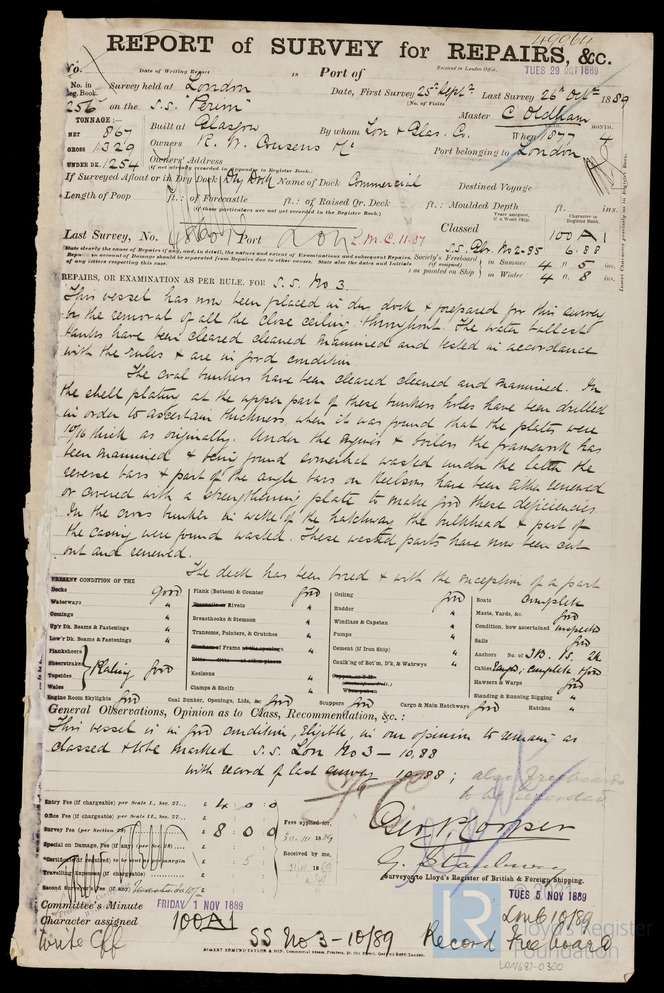 49964
REPORT of SURVEY for REPAIRS, &c.
No.
Date of Writing Report
is Port of
Received in London Office,
TUES 29 OCT 1889
No. in Reg. Book.
Survey held at London
Date, First Survey 25th Sept. Last Survey 26th Octr 1889
(No. of Visits)
256 on the S.S. "Perim"
Master C Oldham
TONNAGE:
NET 867
GROSS 1329
UNDER DK. 1254
Built at Glasgow
By whom Lon & Glas. Co.
When 1877
MONTH. 4
Owners R. W. Cousens
Port belonging to London
Owners' Address
(if not already recorded in Appendix to Register Book.)
If Surveyed Afloat or in Dry Dock Dry Dock Name of Dock Commercial
Destined Voyage
Length of Poop ft.: of Forecastle ft.: of Raised Qr. Deck ft.: Moulded Depth ft. ins.
(if these particulars are not yet recorded in the Register Book.)
Years assigned, if a Wood Ship.
Character in Register Book.
Last Survey, No. Port Lon L.M.C. 11.87
Classed 100 A 1
S.S. No 2-85 6.88
Society's Freeboard (if assigned) as painted on Ship
in Summer 4 ft. 5 ins.
in Winter 4 ft. 8 ins.
Insert Character precisely as in Register Book.
REPAIRS, OR EXAMINATION AS PER RULE, FOR S.S. No 3
This vessel has now been placed in dry dock & prepared for this survey
by the removal of all the close ceiling throughout. The water ballast
tanks have been cleared cleaned examined and tested in accordance
with the rules & are in good condition
The coal bunkers have been cleared cleaned and examined. In
the shell plating at the upper part of these bunkers holes have been drilled
in order to ascertain thickness, when it was found that the plates were
10/16 thick as originally. Under the engines & boilers the framework has
been examined & being found somewhat wasted under the latter the
reverse bars & part of the angle bars on keelsons have been either renewed
or covered with a strengthening plate to make good these deficiencies
In the cross bunker in wake of the hatchway the bulkhead & part of
the casing were found wasted. These wasted parts have now been cut
out and renewed.
The deck has been bored & with the exception of a part
PRESENT CONDITION OF THE
Decks good
Waterways "
Comings "
Up'r Dk. Beams & Fastenings "
Low'r Dk. Beams & Fastenings "
Planksheers
Sheerstrakes
Topsides
Wales
Plating good
Engine Room Skylights good
Plank (Bottom) & Counter good
Rivets "
Breasthooks & Stemson "
Transoms, Pointers, & Crutches "
of Frame "
Keelsons "
Clamps & Shelfs "
Coal Bunker, Openings, Lids, &c. good
Ceiling good
Rudder "
Windlass & Capstan "
Pumps "
Cement (if Iron Ship) "
Caulk'ng of Bot'm, D'k, & Watrwys "
Scuppers good
Cargo & Main Hatchways good
Boats complete
Masts, Yards, &c. good
Condition, how ascertained inspected
Sails good
Anchors No. of 3 B. 1 S. 2 K.
Cables complete & good
Hawsers & Warps good
Standing & Running Rigging "
Hatches "
General Observations, Opinion as to Class, Recommendation, &c.:
This vessel is in good condition, eligible, in our opinion to remain as
classed & to be marked S.S. Lon No 3 - 10.88
with record of last survey 10.88; also freeboards
to be recorded
Entry Fee (if chargeable) per Scale I., Sec. 27... £ 4 . 0 . 0
Office Fee (if chargeable) per Scale II., Sec. 27...
Survey Fee (per Section 28) £ 8 . 0 . 0
Special on Damage, Fee (if any) (per Sec. 28)
Travelling Expenses (if chargeable)
Second Surveyor's Fee (if any)
Fees applied for,
Received by me,
Geo. P. Cooper
G. Stanbury
Surveyors to Lloyd's Register of British & Foreign Shipping.
Committee's Minute FRIDAY 1 NOV 1889
TUES 5 NOV 1889
Character assigned 100A1
LMC 10/89
Write Off
SS No 3 - 10/89
Record Freeboard
Lloyd's Register
Foundation
LON681-0300